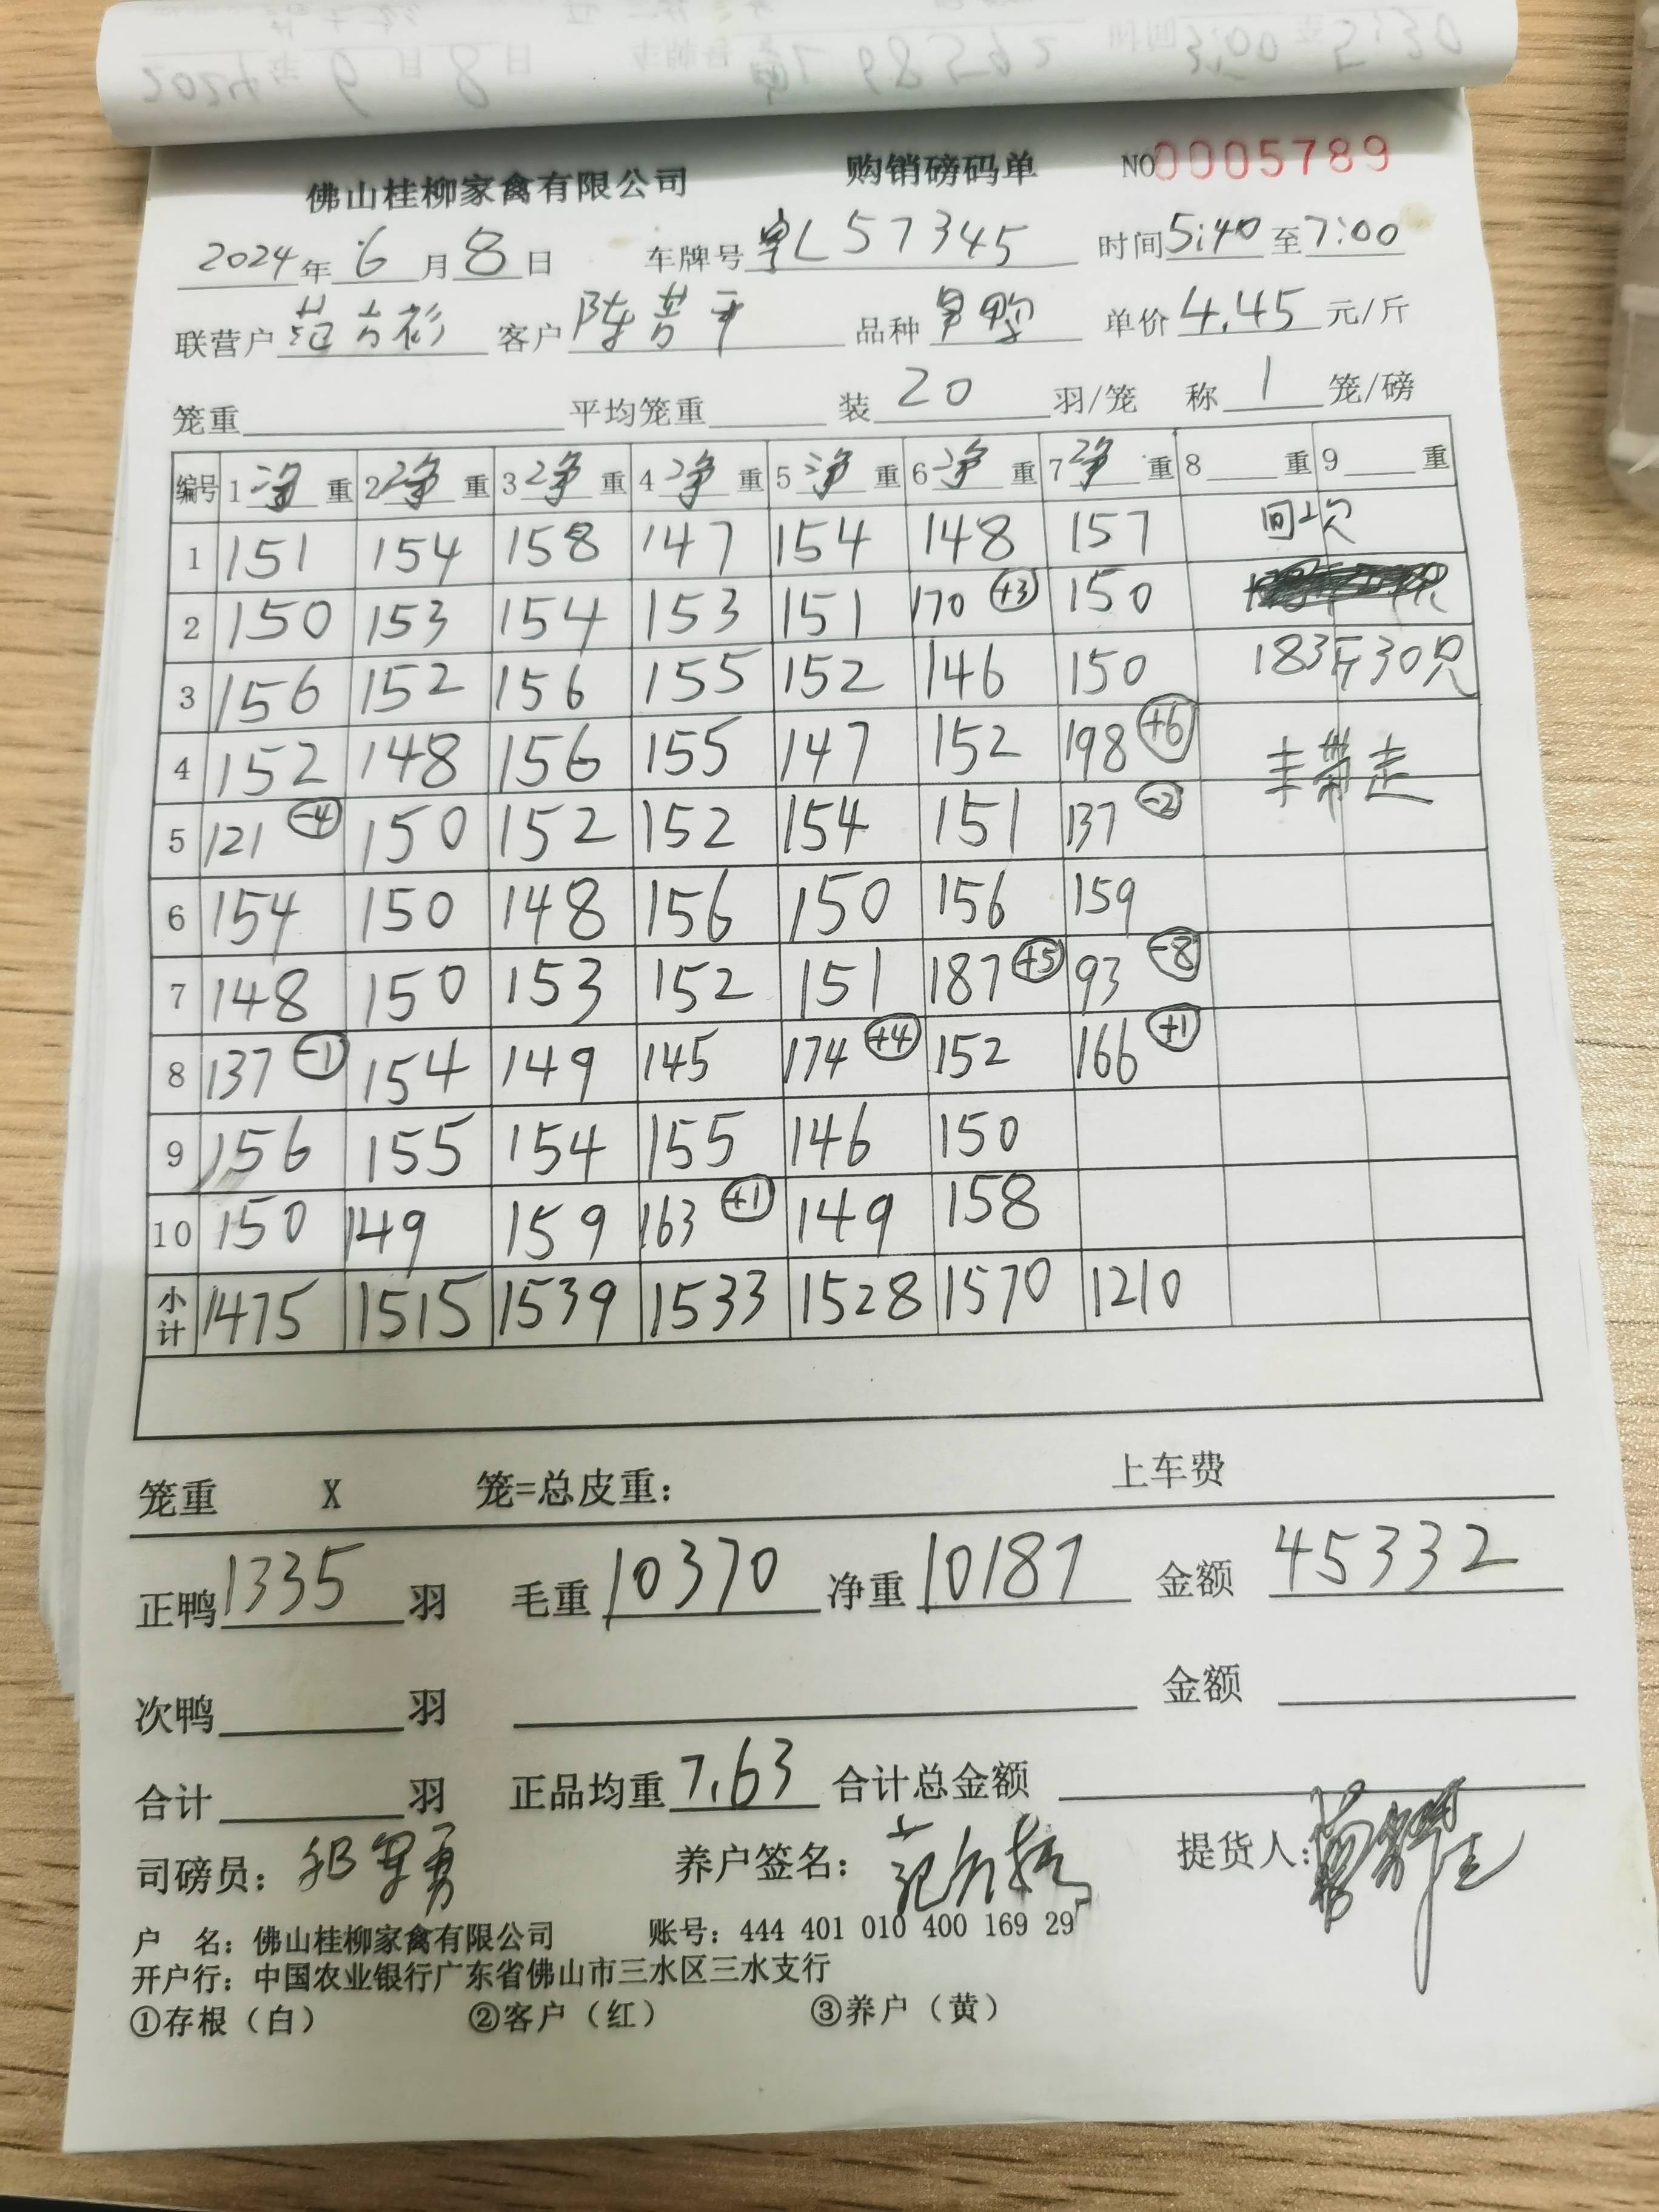 佛山桂柳家禽有限公司 购销磅码单 NO 0005789
2024年 6 月 8 日 车牌号 粤L57345 时间 5:40 至 7:00
联营户 范 客户 陈 品种 单价 4.45 元/斤
笼重 平均笼重 装 20 羽/笼 称 1 笼/磅
编号 1 净 重 2 净 重 3 净 重 4 净 重 5 净 重 6 净 重 7 净 重 8 重 9 重
1 151 154 158 147 154 148 157 回次
2 150 153 154 153 151 170 +3 150
3 156 152 156 155 152 146 150 183斤30只
4 152 148 156 155 147 152 198 +6 带走
5 121 -4 150 152 152 154 151 137 -2
6 154 150 148 156 150 156 159
7 148 150 153 152 151 187 +5 93 -8
8 137 -1 154 149 145 174 +4 152 166 +1
9 156 155 154 155 146 150
10 150 149 159 163 +1 149 158
小计 1475 1515 1539 1533 1528 1570 1210
笼重 X 笼=总皮重： 上车费
正鸭 1335 羽 毛重 10370 净重 10187 金额 45332
次鸭 羽 金额
合计 羽 正品均重 7.63 合计总金额
司磅员： 养户签名： 范 提货人：
户 名：佛山桂柳家禽有限公司 账号：444 401 010 400 169 29
开户行：中国农业银行广东省佛山市三水区三水支行
①存根（白） ②客户（红） ③养户（黄）